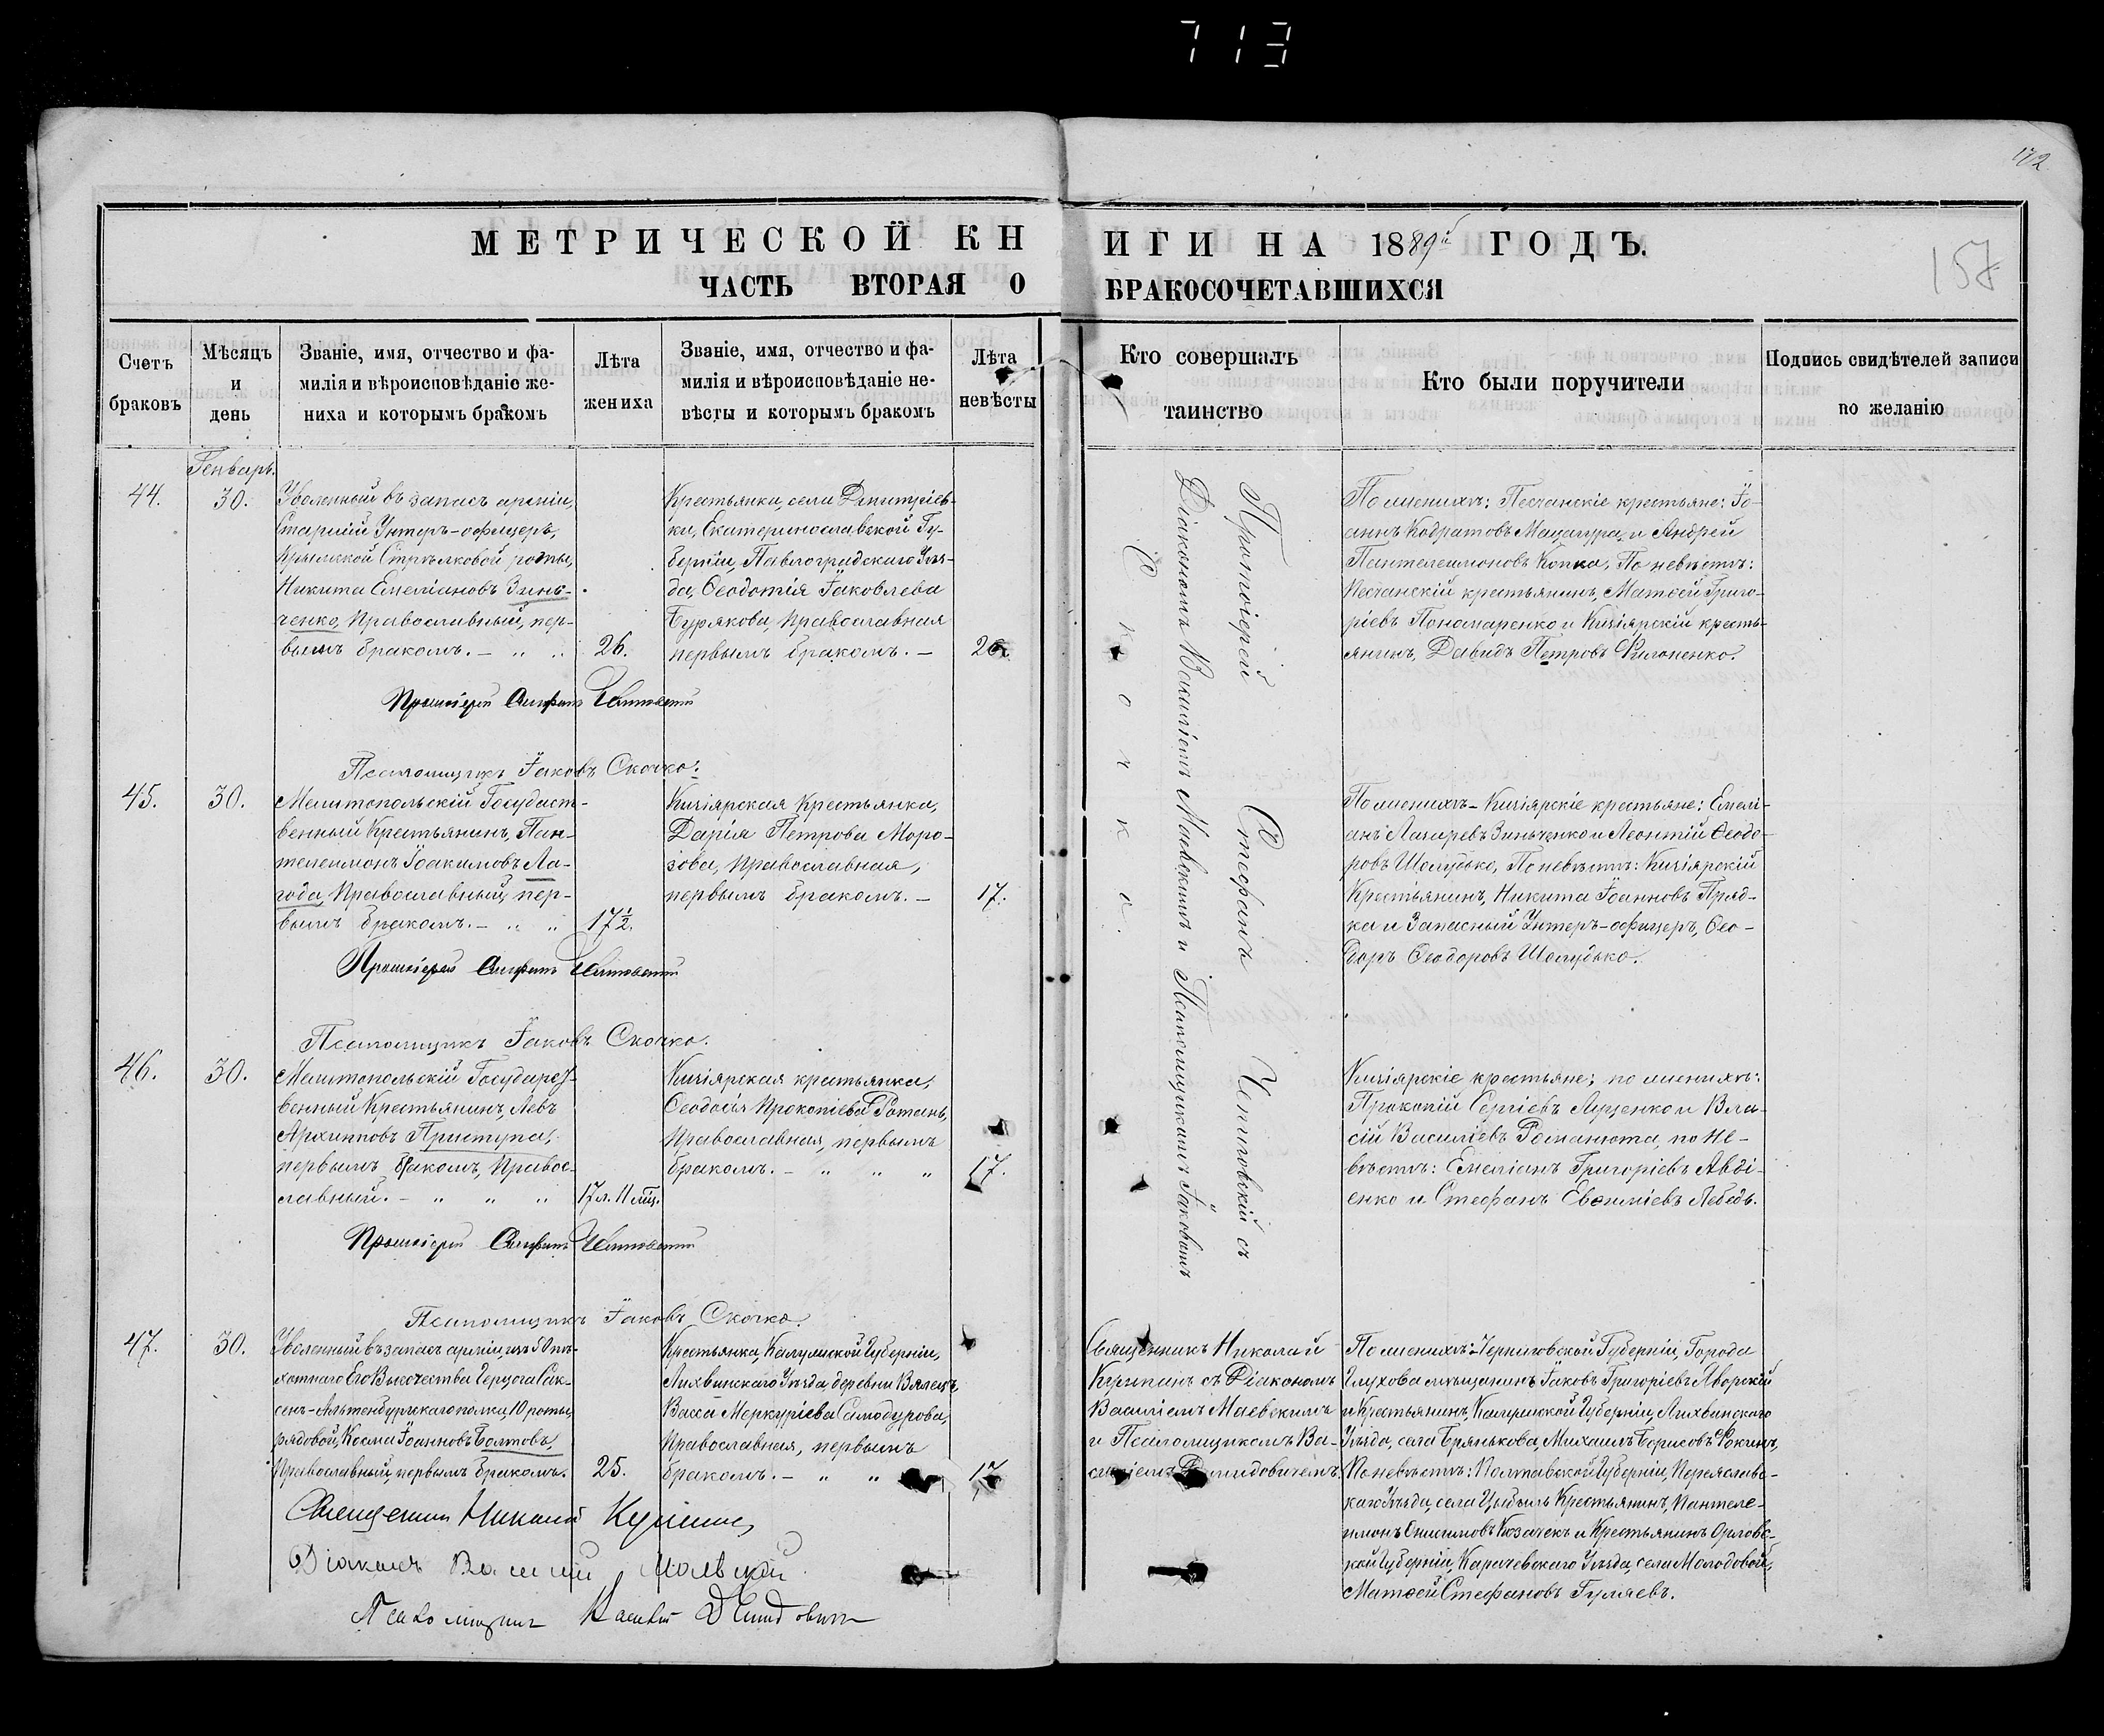 713
172
157
МЕТРИЧЕСКОЙ КНИГИ НА 1889й ГОДЪ.
ЧАСТЬ ВТОРАЯ О БРАКОСОЧЕТАВШИХСЯ
Счетъ браковъ
Мѣсяцъ и день
Званіе, имя, отчество и фа-
милія и вѣроисповѣданіе же-
ниха и которымъ бракомъ
Лѣта жениха
Званіе, имя, отчество и фа-
милія и вѣроисповѣданіе не-
вѣсты и которымъ бракомъ
Лѣта невѣсты
Кто совершалъ
таинство
Кто были поручители
Подпись свидѣтелей записи
по желанію
Генварь.
44.
30.
Уволенный въ запасъ арміи,
Старшій Унтеръ-офицеръ,
Крымской Стрѣлковой роты,
Никита Емеліановъ Зинь-
ченко, Православный, пер-
вымъ бракомъ.— " "
26.
Крестьянка, села Дмитріев-
ки, Екатеринославской Гу-
берніи, Павлоградскаго Уѣз-
да, Ѳеодотія Іаковлева
Бурякова, Православная
первымъ бракомъ.—
26.
Протоіерей Стефанъ Чепговскій съ
Діакономъ Василіемъ Маевскимъ и Псаломщикомъ Іаковомъ
Скочкo.
По женихѣ: Песчанскіе крестьяне: Іо-
аннъ Кодратовъ Мацагура, и Андрей
Пантелеимоновъ Копка, По невѣстѣ:
Песчанскій крестьянинъ, Матѳей Григо-
ріевъ Пономаренко и Кизіярскій кресть-
янинъ, Давидъ Петровъ Филоненко.
Протоіерей Стефанъ
Псаломщикъ Іаковъ Скочко.
45.
30.
Мелитопольскій Государст-
венный Крестьянинъ, Пан-
телеимонъ Іоакимовъ Ла-
года, Православный, пер-
вымъ бракомъ.— " "
17½.
Кизіярская Крестьянка,
Дарія Петрова Моро-
зова, Православная,
первымъ бракомъ.—
17.
По женихѣ—Кизіярскіе крестьяне: Емелі-
анъ Лазаревъ Зиньченко и Леонтій Ѳеодо-
ровъ Шелудько, По невѣстѣ: Кизіярскій
Крестьянинъ, Никита Іоанновъ Пряд-
ка и Запасный Унтеръ-офицеръ, Ѳео-
доръ Ѳеодоровъ Шелудько.
Протоіерей Стефанъ
Псаломщикъ Іаковъ Скочко.
46.
30.
Мелитопольскій Государст-
венный Крестьянинъ, Левъ
Архипповъ Приступа,
первымъ бракомъ, Правос-
лавный.— " " "
17 л. 11 мѣс.
Кизіярская крестьянка,
Ѳеодосія Прокопіева Ротань,
Православная, первымъ
бракомъ.— " " "
17.
Кизіярскіе крестьяне; по женихѣ:
Прокопій Сергіевъ Луценко и Вла-
сій Василіевъ Романюта, по не-
вѣстѣ: Емеліанъ Григоріевъ Авді-
енко и Стефанъ Евѳиміевъ Лебедь.
Протоіерей Стефанъ
Псаломщикъ Іаковъ Скочко.
47.
30.
Уволенный въ запасъ арміи, изъ 50 пѣ-
хотнаго Его Высочества Герцога Сак-
сенъ-Альтенбургскаго полка, 10 роты,
рядовой, Косма Іоанновъ Болтовъ,
Православный, первымъ бракомъ.
25.
Крестьянка, Калужской Губерніи,
Лихвинскаго Уѣзда, деревни
Васса Меркуріева Самодурова,
Православная, первымъ
бракомъ.— " "
17
Священникъ Николай
съ Діакономъ
Василіемъ Маевскимъ
и Псаломщикомъ Ва-
силіемъ Демидовичемъ.
По женихѣ:—Черниговской Губерніи, Города
Глухова мѣщанинъ Іаковъ Григоріевъ Яворскій
и Крестьянинъ, Калужской Губерніи, Лихвинскаго
Уѣзда, села Брянькова, Михаилъ Борисовъ Фокинъ,
По невѣстѣ: Полтавской Губерніи, Переяславс-
каго Уѣзда, села Крестьянинъ, Пантеле-
имонъ Онисимовъ Козачекъ и Крестьянинъ Орловс-
кой Губерніи, Карачевскаго Уѣзда, села Молодовой,
Матѳей Стефановъ Гуляевъ.
Священникъ Николай
Діаконъ Василій Маевскій
Псаломщикъ Василій Демидовичъ